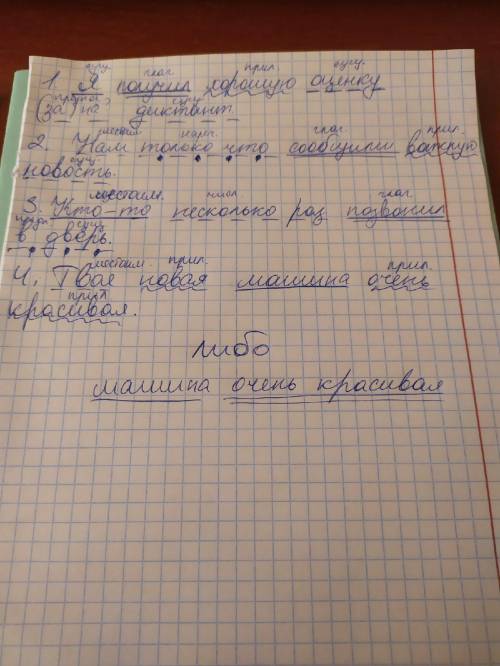 сущ. глаг. прил. сущ.
1. Я получил хорошую оценку
предлог сущ.
(за) на диктант.
местоим. нареч. глаг. прил.
2. Нам только что сообщили важную
сущ.
новость.
местоим. числ глаг.
3. Кто-то несколько раз позвонил
предл. сущ.
в дверь.
местоим. прил. прил.
4. Твоя новая машина очень
прил
красивая.
либо
машина очень красивая